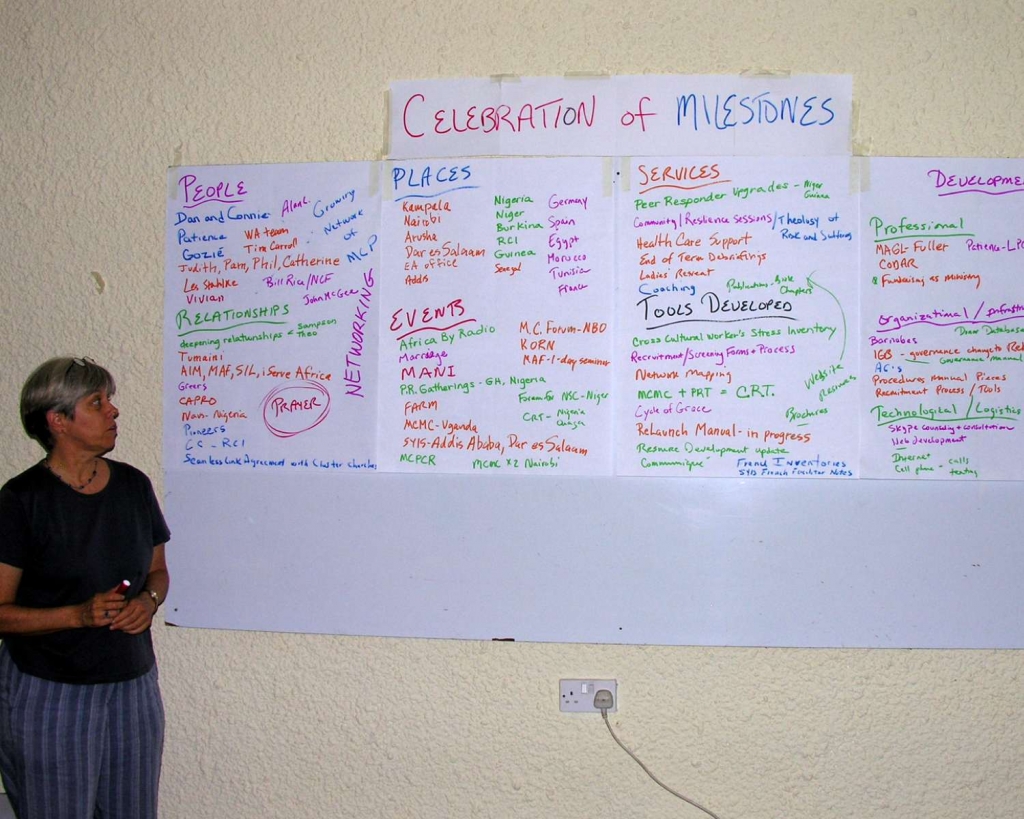 CELEBRATION of MILESTONES
PEOPLE
Dan and Connie
Patience
GOZIE
Judith, Pam, Phil, Catherine
Les Stahlke
Vivian
Alan L.
WA team
Tim Carroll
Bill Rice/NCF
John McGee
Growing
Network
of
MCP
NETWORKING
RELATIONSHIPS
deepening relationships = Sampson
Theo
Tumaini
AIM, MAF, SIL, iServe Africa
Greers
CAPRO
Nav - Nigeria
Pioneers
CC - RCI
Seamless Link Agreement with Cluster Churches
PRAYER
PLACES
Kampala
Nairobi
Arusha
Dar es Salaam
EA office
Addis
Nigeria
Niger
Burkina
RCI
Guinea
Senegal
Germany
Spain
Egypt
Morocco
Tunisia
France
EVENTS
Africa By Radio
Marriage
MANI
P.R. Gatherings - GH, Nigeria
FARM
MCMC - Uganda
SYIS - Addis Ababa, Dar es Salaam
MCPCR
MCMC x2 Nairobi
M.C. Forum - NBO
KORN
MAF - 1-day seminar
Forum for NSC - Niger
CRT - Nigeria
SERVICES
Peer Responder Upgrades - Niger
Guinea
Community/Resilience Sessions/Theology of
Risk and Suffering
Health Care Support
End of Term Debriefings
Ladies' Retreat
Coaching
Publications - Book
Chapters
TOOLS DEVELOPED
Cross Cultural Worker's Stress Inventory
Recruitment/Screening Forms + Process
Network Mapping
MCMC + PRT = C.R.T.
Cycle of Grace
ReLaunch Manual - in progress
Resource Development update
Communique
Website
Resources
Brochures
French Inventories
SYIS French Facilitator Notes
DEVELOPME
Professional
MAGL - Fuller
CODAR
Fundraising as Ministry
Patience - LPC
Organizational / Infrastr
Donor Database
Barnabas
IGB - governance change to Rel
Governance manual
AC's
Procedures Manual Pieces
Recruitment Process / Tools
Technological / Logistics
Skype counseling + consultation
Web development
Internet
Cell phone - calls
texting